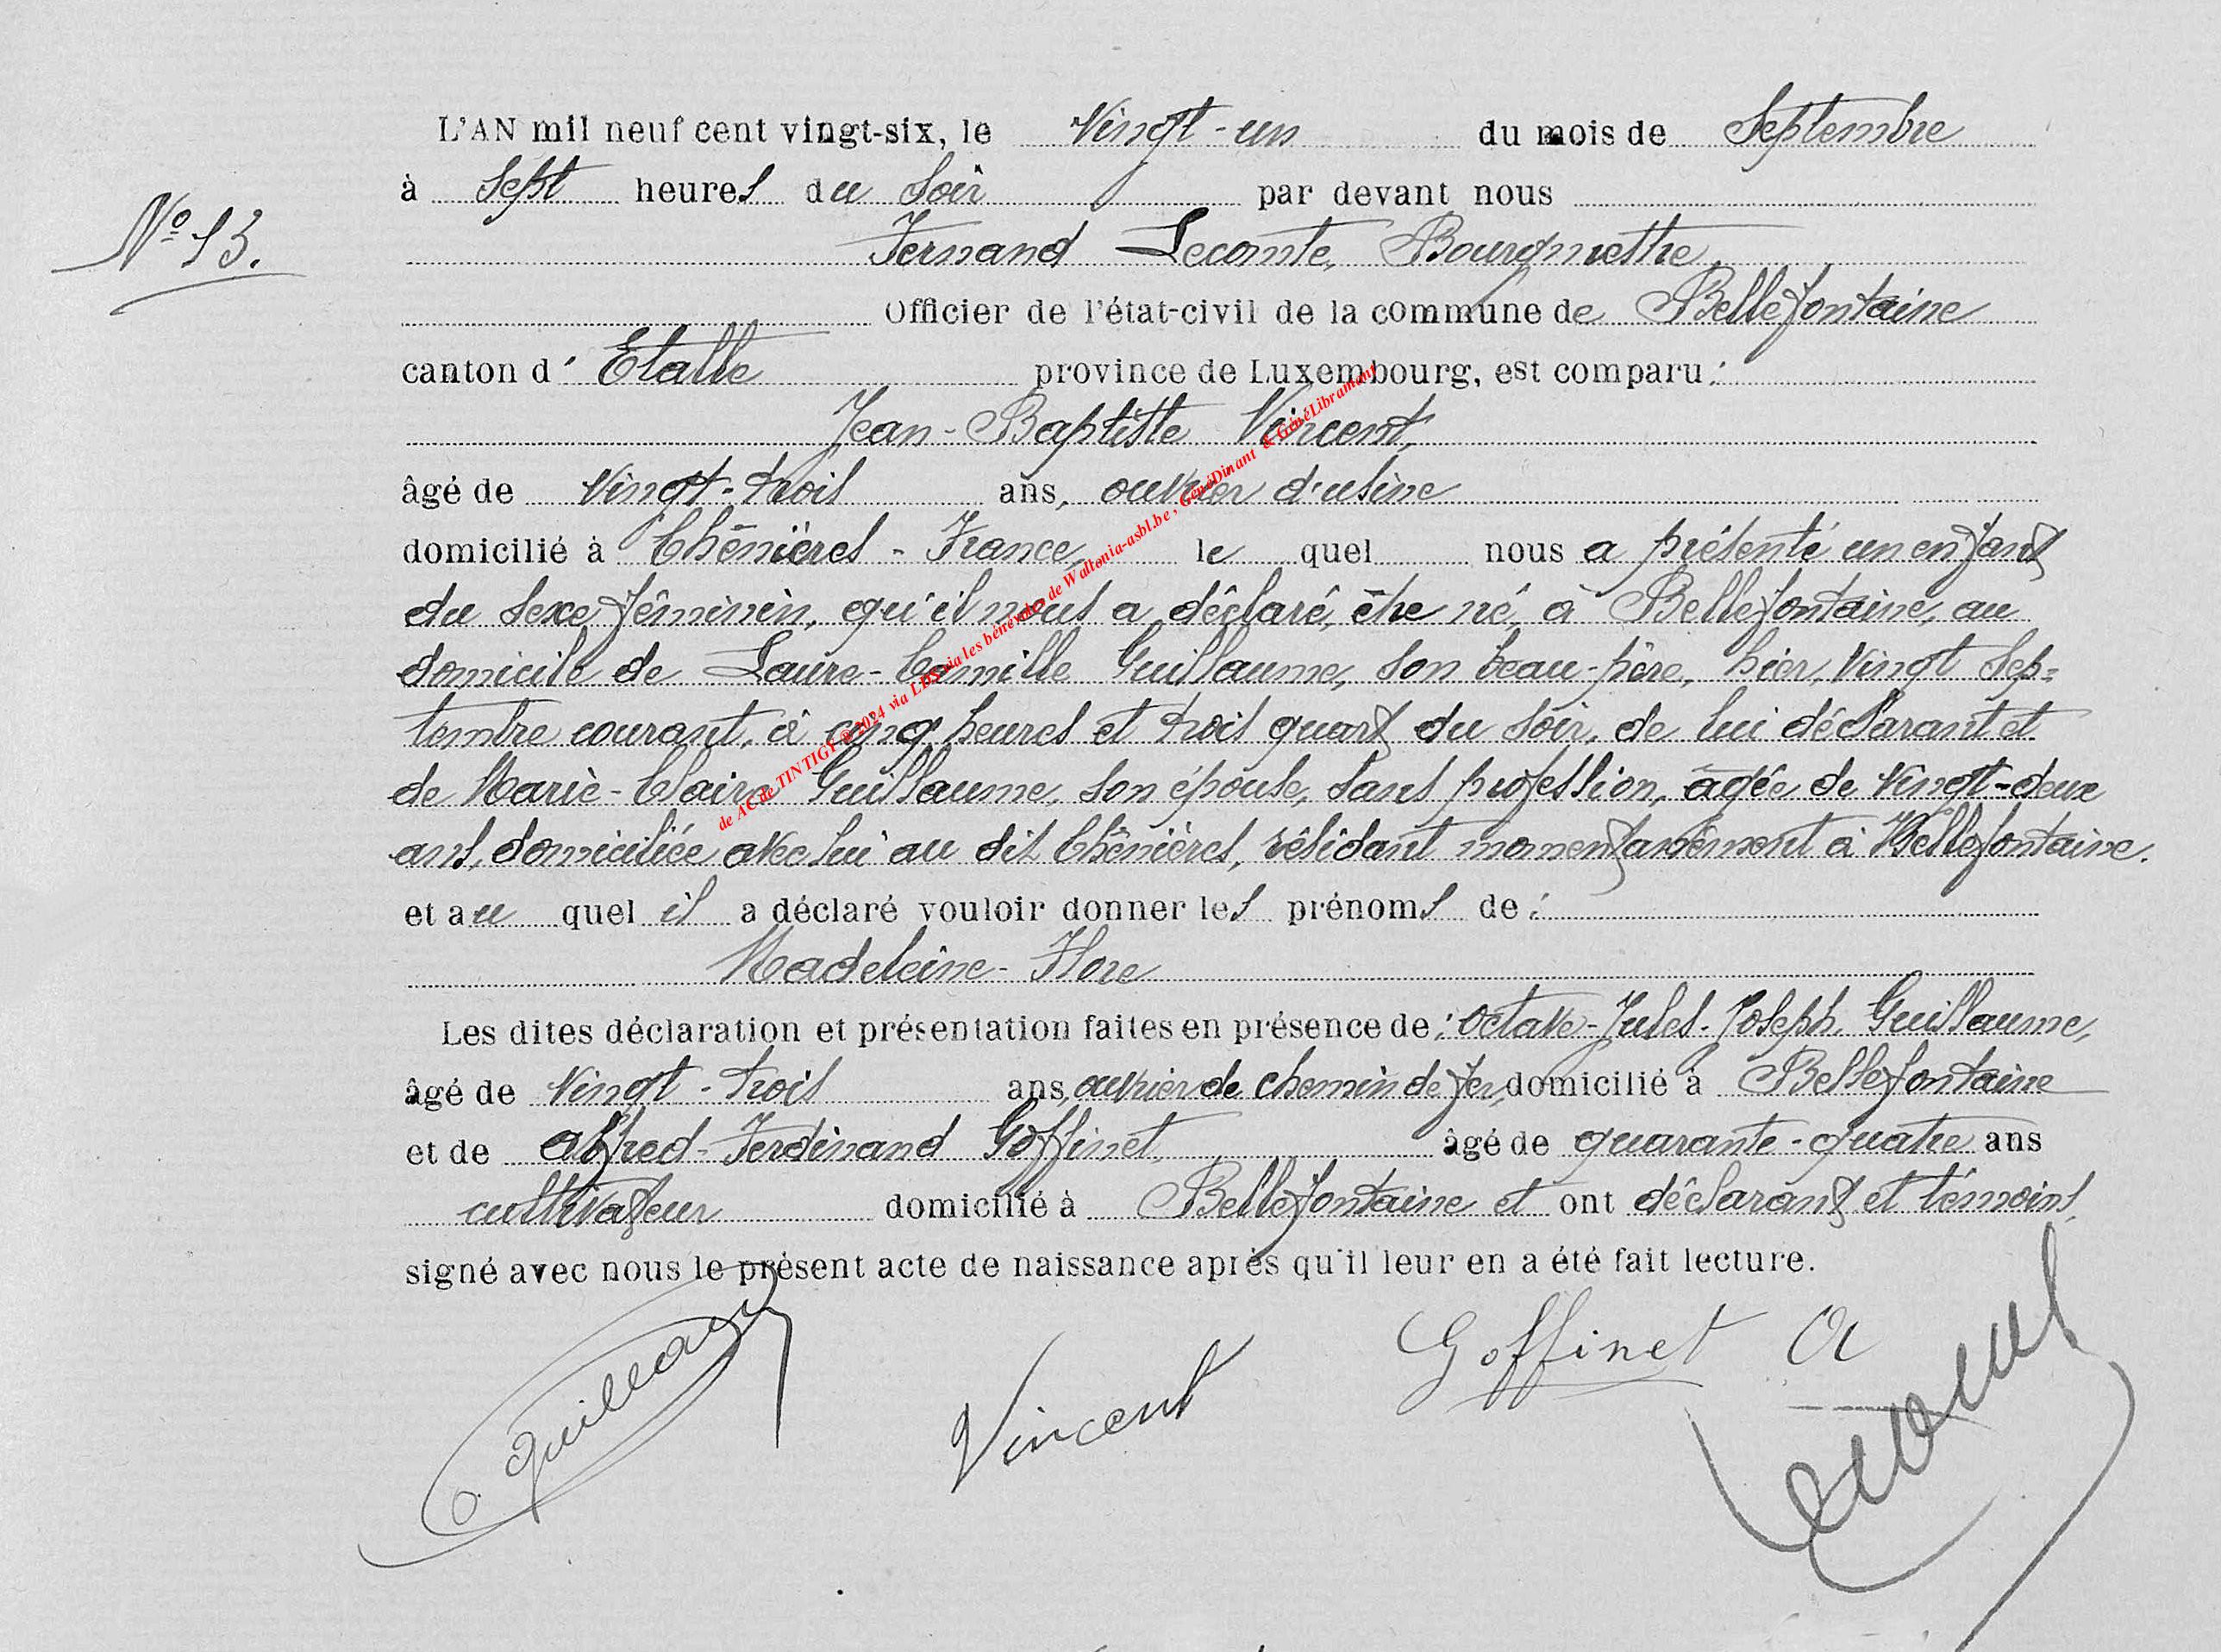 L'AN mil neuf cent vingt-six, le Vingt-un du mois de Septembre
à sept heures du soir par devant nous
N° 13.
Fernand Lecomte, Bourgmestre,
Officier de l'état-civil de la commune de Bellefontaine
canton d' Etalle province de Luxembourg, est comparu :
Jean-Baptiste Vincent,
âgé de Vingt-trois ans, ouvrier d'usine
domicilié à Chénières - France, le quel nous a présenté un enfant
du sexe féminin, qu'il nous a déclaré, être né, à Bellefontaine, au
domicile de Laure-Camille Guillaume, son beau-père, hier, Vingt Sep=
tembre courant, à cinq heures et trois quarts du soir, de lui déclarant et
de Marie-Claire Guillaume, son épouse, sans profession, âgée de Vingt-deux
ans, domiciliée avec lui au dit Chénières, résidant momentanément à Bellefontaine.
et au quel il a déclaré vouloir donner les prénoms de :
Madeleine-Flore
Les dites déclaration et présentation faites en présence de : Octave-Jules-Joseph Guillaume,
âgé de Vingt-trois ans, ouvrier de chemin de fer, domicilié à Bellefontaine
et de Alfred-Ferdinand Goffinet, âgé de quarante-quatre ans
cultivateur domicilié à Bellefontaine et ont déclarant et témoins,
signé avec nous le présent acte de naissance après qu'il leur en a été fait lecture.
O. Guillaume
Vincent
Goffinet A
de AC de TINTIGY @ 2024 via LDS via les bénévoles de Waltonia-asbl.be , GénéDinant & GénéLibramont